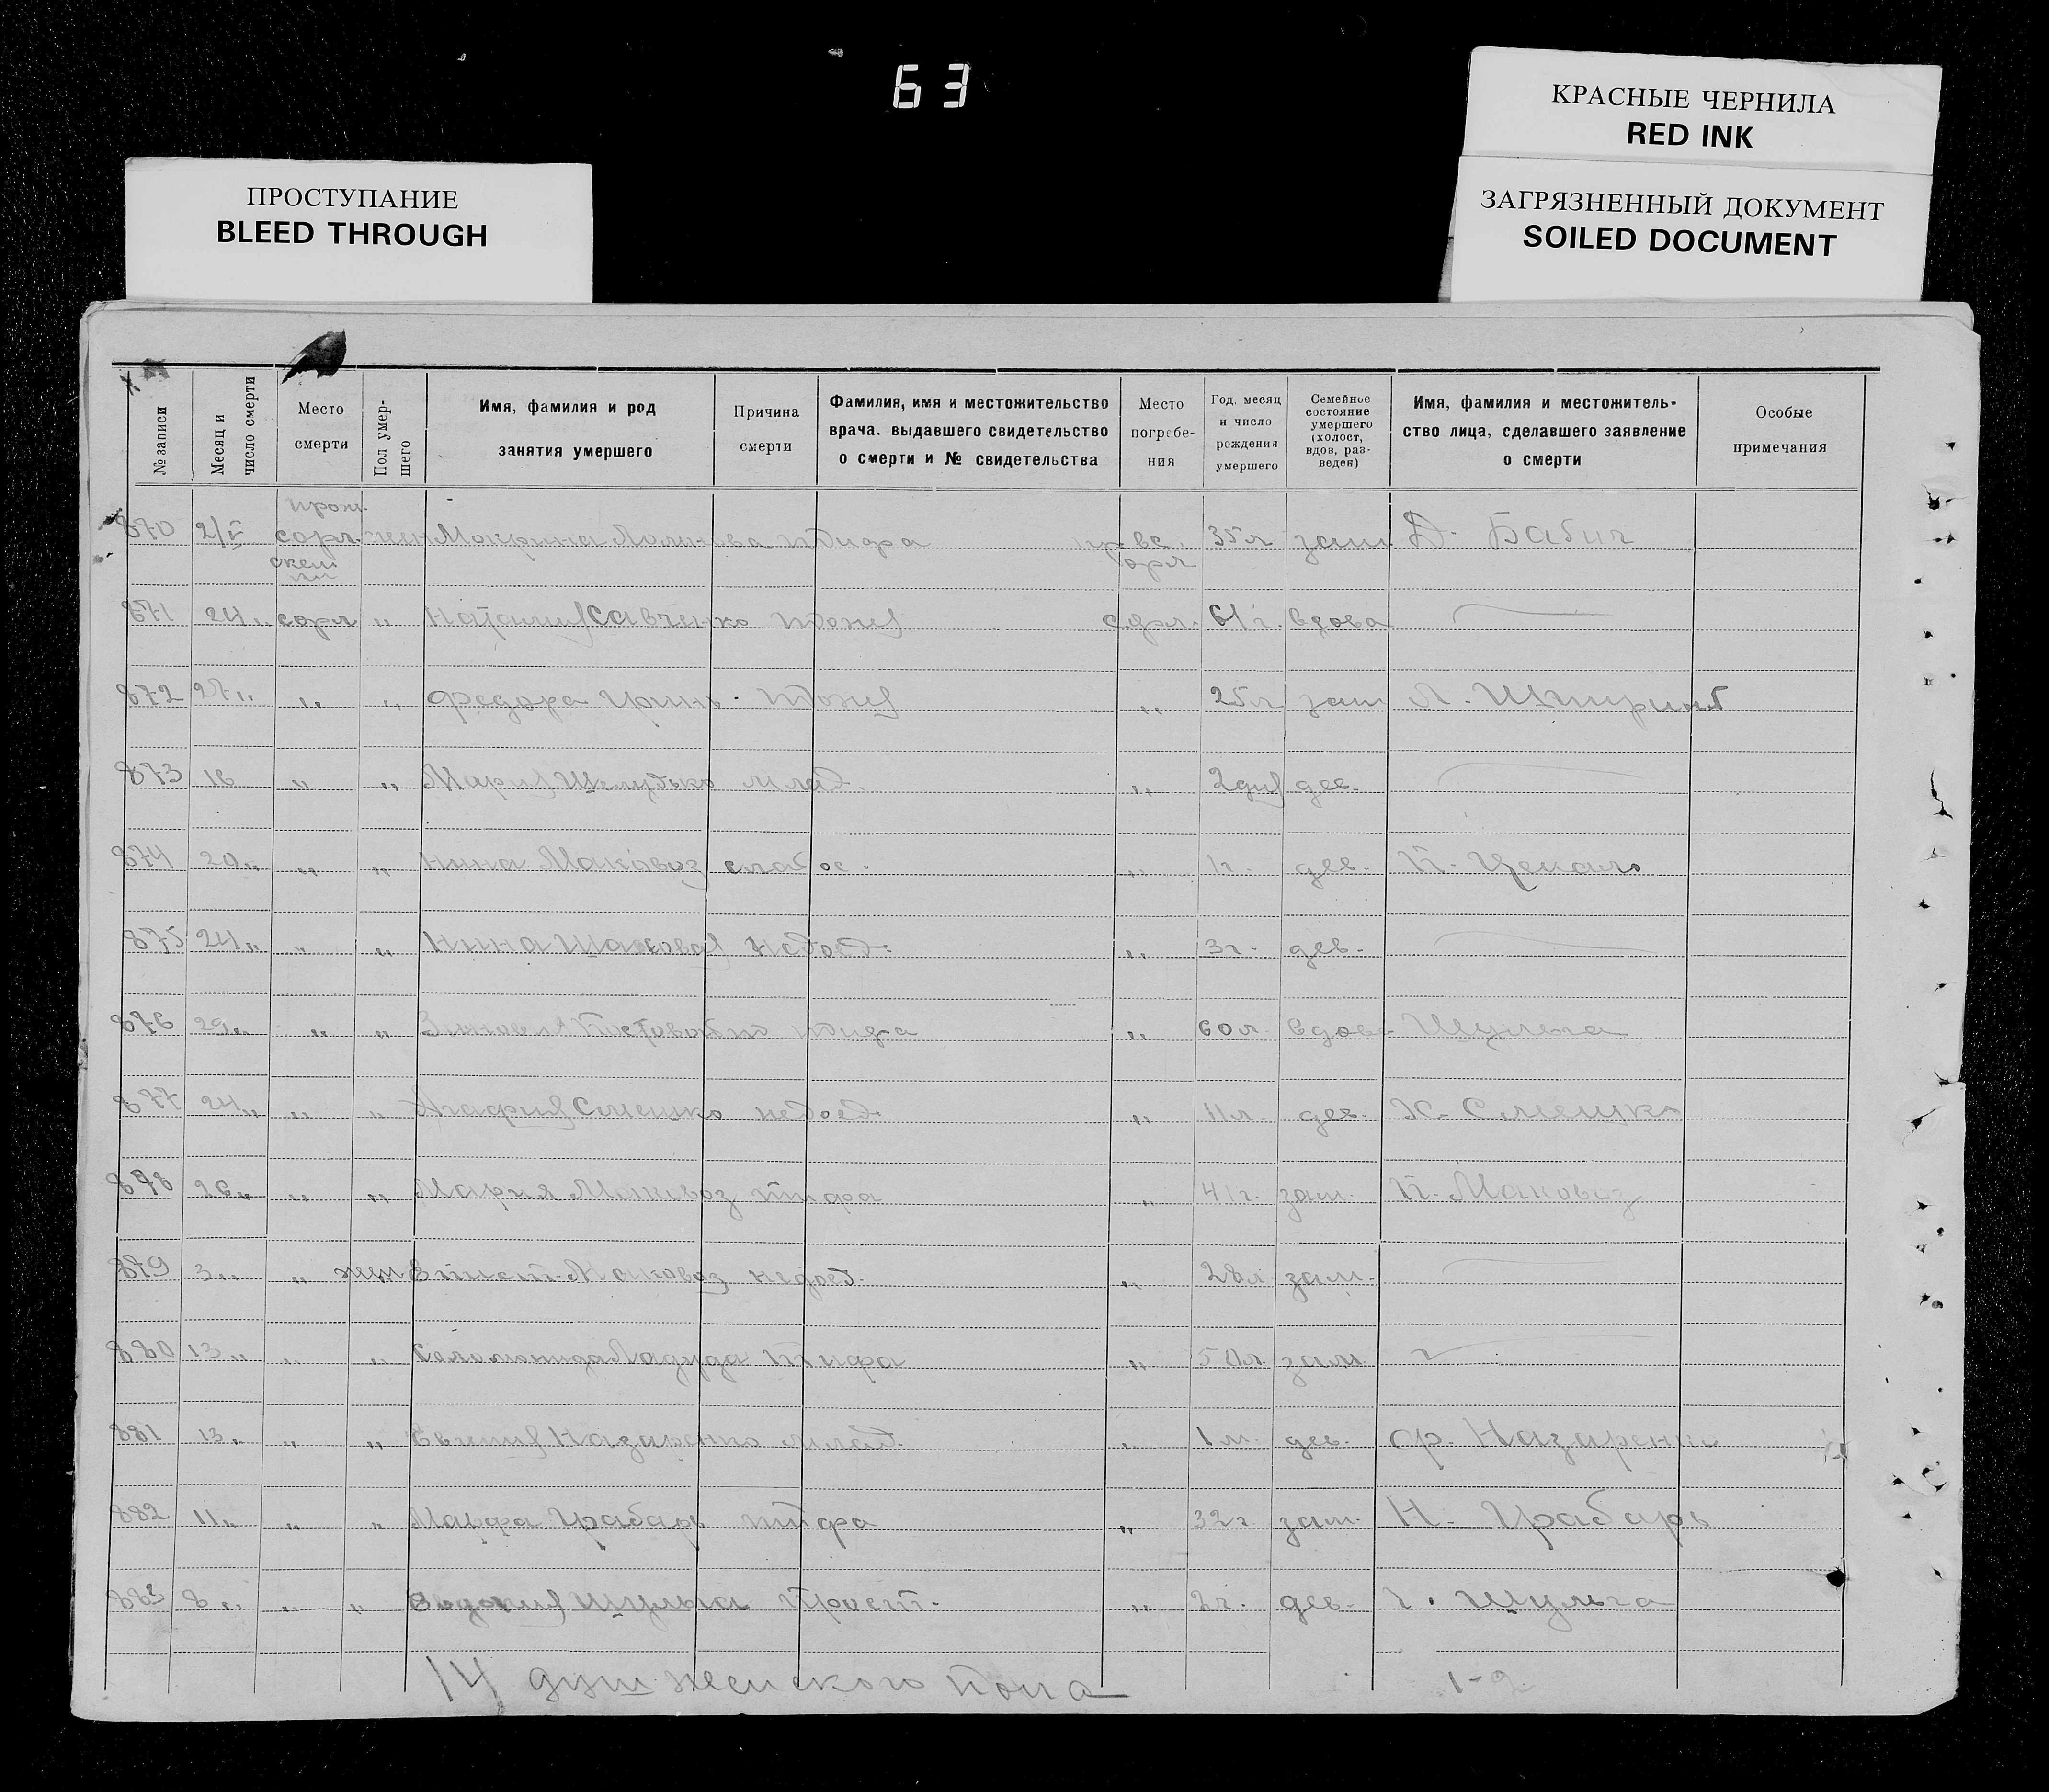 63
КРАСНЫЕ ЧЕРНИЛА
RED INK
ПРОСТУПАНИЕ
BLEED THROUGH
ЗАГРЯЗНЕННЫЙ ДОКУМЕНТ
SOILED DOCUMENT
№ записи
Месяц и число смерти
Место смерти
Пол умер-
шего
Имя, фамилия и род
занятия умершего
Причина
смерти
Фамилия, имя и местожительство
врача, выдавшего свидетельство
о смерти и № свидетельства
Место
погребе-
ния
Год, месяц
и число
рождения
умершего
Семейное
состояние
умершего
(холост,
вдов, раз-
веден)
Имя, фамилия и местожитель-
ство лица, сделавшего заявление
о смерти
Особые
примечания
870 2/V жен Мокрина тифа 35 л зам Д. Бабич
871 24 „ сорл „ Наталия Савченко сорл. 61 г. вдова
872 27 „ „ „ Федора „ 25 л зам Л.
873 16 „ „ Мария Шелудько млад. „ 2 дня дев.
874 20 „ „ „ Нина Маковоз слабос. „ 1 г. дев. П.
875 24 „ „ „ Нина недоед. „ 3 г. дев.
876 29 „ „ „ тифа „ 60 л. вдова Шульга
877 24 „ „ „ Агафия Смешко недоед. „ 11 л. дев. К. Смешко
878 26 „ „ „ Мария Маковоз тифа „ 41 г. зам. П. Маковоз
879 3 „ „ жен Маковоз недоед. „ 28 л. зам.
880 13 „ „ „ тифа „ 50 л. зам.
881 13 „ „ „ Назаренко млад. „ 1 м. дев. Ф. Назаренко
882 11 „ „ „ Марфа Грабарь тифа „ 32 г. зам. Н. Грабарь
883 8 „ „ „ Евдокия Шульга прост. „ 2 г. дев. Г. Шульга
14 душ женского пола 1-2